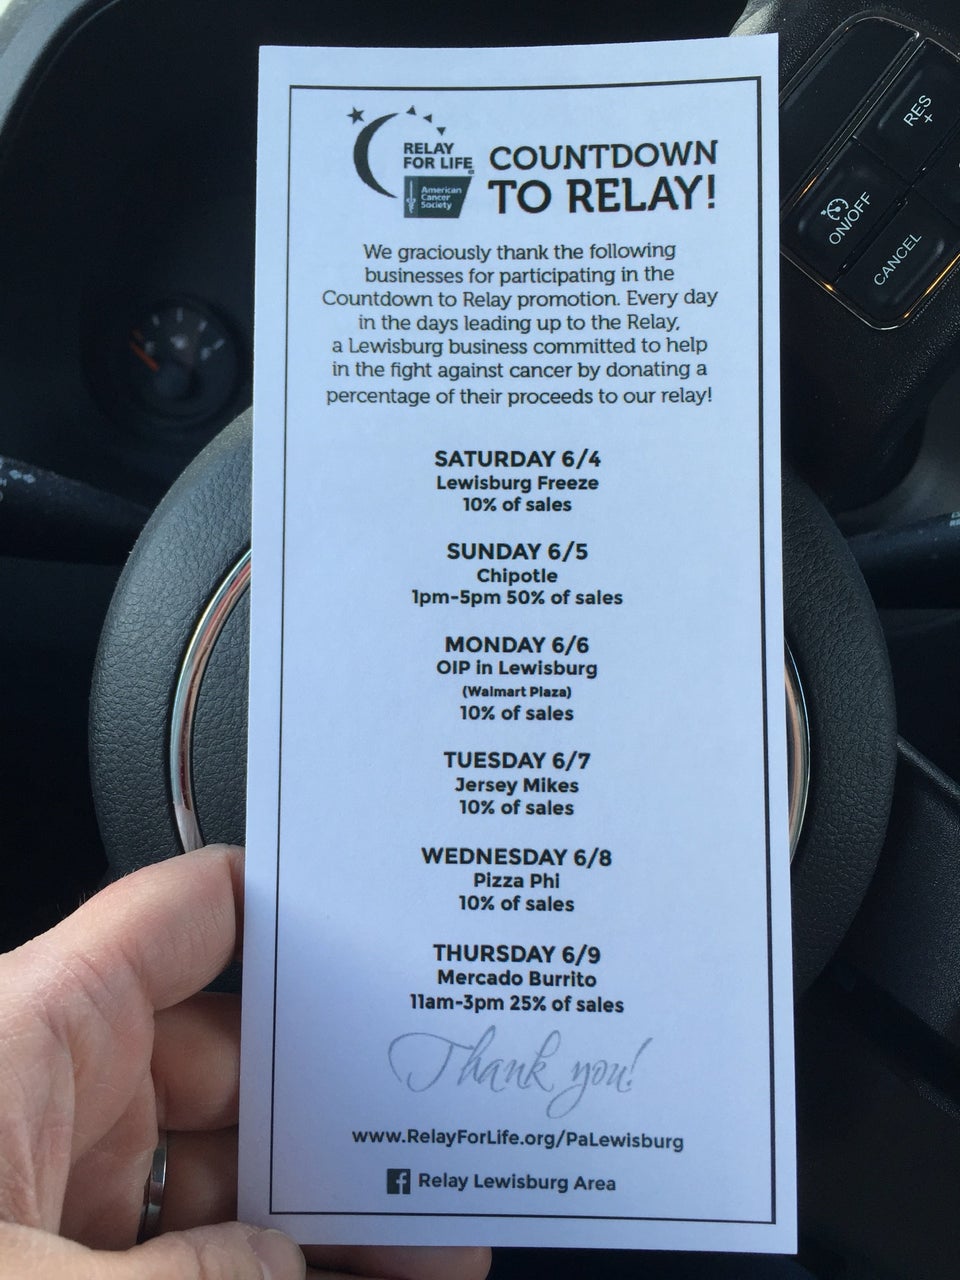 RELAY
FOR LIFE
American
Cancer
Society
COUNTDOWN
TO RELAY!
We graciously thank the following
businesses for participating in the
Countdown to Relay promotion. Every day
in the days leading up to the Relay,
a Lewisburg business committed to help
in the fight against cancer by donating a
percentage of their proceeds to our relay!
SATURDAY 6/4
Lewisburg Freeze
10% of sales
SUNDAY 6/5
Chipotle
1pm-5pm 50% of sales
MONDAY 6/6
OIP in Lewisburg
(Walmart Plaza)
10% of sales
TUESDAY 6/7
Jersey Mikes
10% of sales
WEDNESDAY 6/8
Pizza Phi
10% of sales
THURSDAY 6/9
Mercado Burrito
11am-3pm 25% of sales
Thank you!
www.RelayForLife.org/PaLewisburg
Relay Lewisburg Area
RES
+
ON/OFF
CANCEL